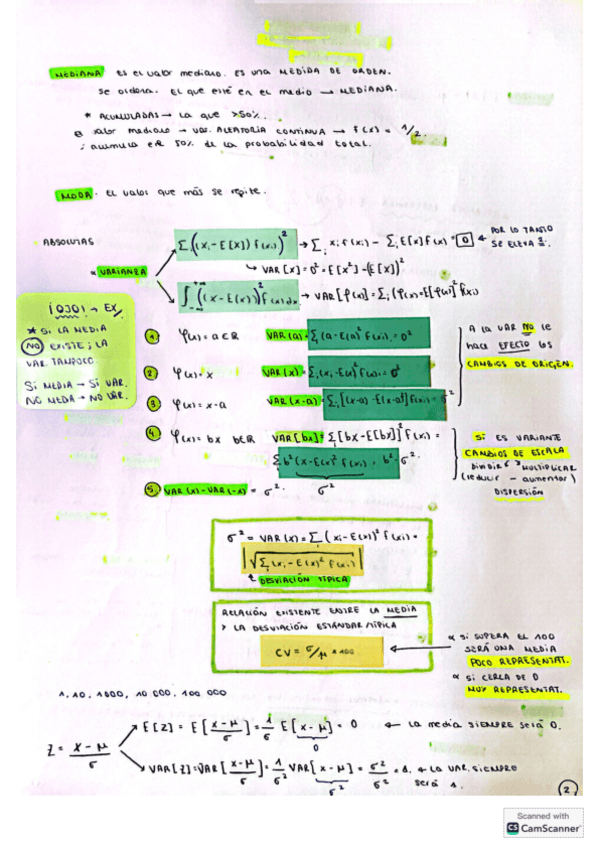 MEDIANA es el valor mediano. Es una MEDIDA DE ORDEN.
Se ordena. El que esté en el medio → MEDIANA.
* ACUMULADAS → La que >50%.
valor mediano → VAR. ALEATORIA CONTINUA → F(x) = 1/2.
acumula el 50% de la probabilidad total.
MODA. El valor que más se repite.
ABSOLUTAS
VARIANZA
Σi((xi-E[x])f(xi))²
→ Σi xi f(xi) - Σi E[x] f(x) = 0
POR LO TANTO
SE ELEVA 2.
↳ VAR [x] = σ² = E[x²]-(E[x])²
∫((x-E(x))² f(x)dx
→ VAR [φ(x)] = Σi (φ(x)-E[φ(x)]² f(xi)
¡OJO! → EX
* SI LA MEDIA
NO EXISTE; LA
VAR. TAMPOCO.
SI MEDIA → SI VAR.
NO MEDA → NO VAR.
1 φ(x) = a ∈ R VAR (a) = Σi(a-E(a)² f(xi) = 0²
2 φ(x) = x VAR (x) = Σi(xi-E(x)² f(xi) = σ²
3 φ(x) = x-a VAR (x-a) = Σi[(x-a)-E(x-a)]² f(xi) = σ²
A la VAR NO le
hace EFECTO los
CAMBIOS DE ORIGEN.
4 φ(x) = bx b∈R VAR [bx] = Σi[bx-E[bx)]² f(xi) =
Σi b²(x-E(x)² f(xi) = b²·σ².
σ²
SI ES VARIANTE
CAMBIOS DE ESCALA
DIVIDIR ó MULTIPLICAR
(reducir - aumentar)
DISPERSIÓN
5 VAR (x) = VAR (-x) = σ².
σ² = VAR (x) = Σi (xi-E(x))² f(xi) =
√Σi(xi-E(x)² f(xi)
↳ DESVIACIÓN TÍPICA
RELACIÓN EXISTENTE ENTRE LA MEDIA
Y LA DESVIACIÓN ESTÁNDAR/TÍPICA
CV = σ/μ × 100
SI SUPERA EL 100
SERÁ UNA MEDIA
POCO REPRESENTAT.
SI CERCA DE 0
MUY REPRESENTAT.
1, 10, 1000, 10 000, 100 000
E[Z] = E[x-μ/σ] = 1/σ E[x-μ] = 0 ← La media SIEMPRE será 0.
0
Z = x-μ/σ
VAR[Z] = VAR[x-μ/σ] = 1/σ² VAR[x-μ] = σ²/σ² = 1. ← La VAR. SIEMPRE
será 1.
σ²
2
Scanned with
CS CamScanner